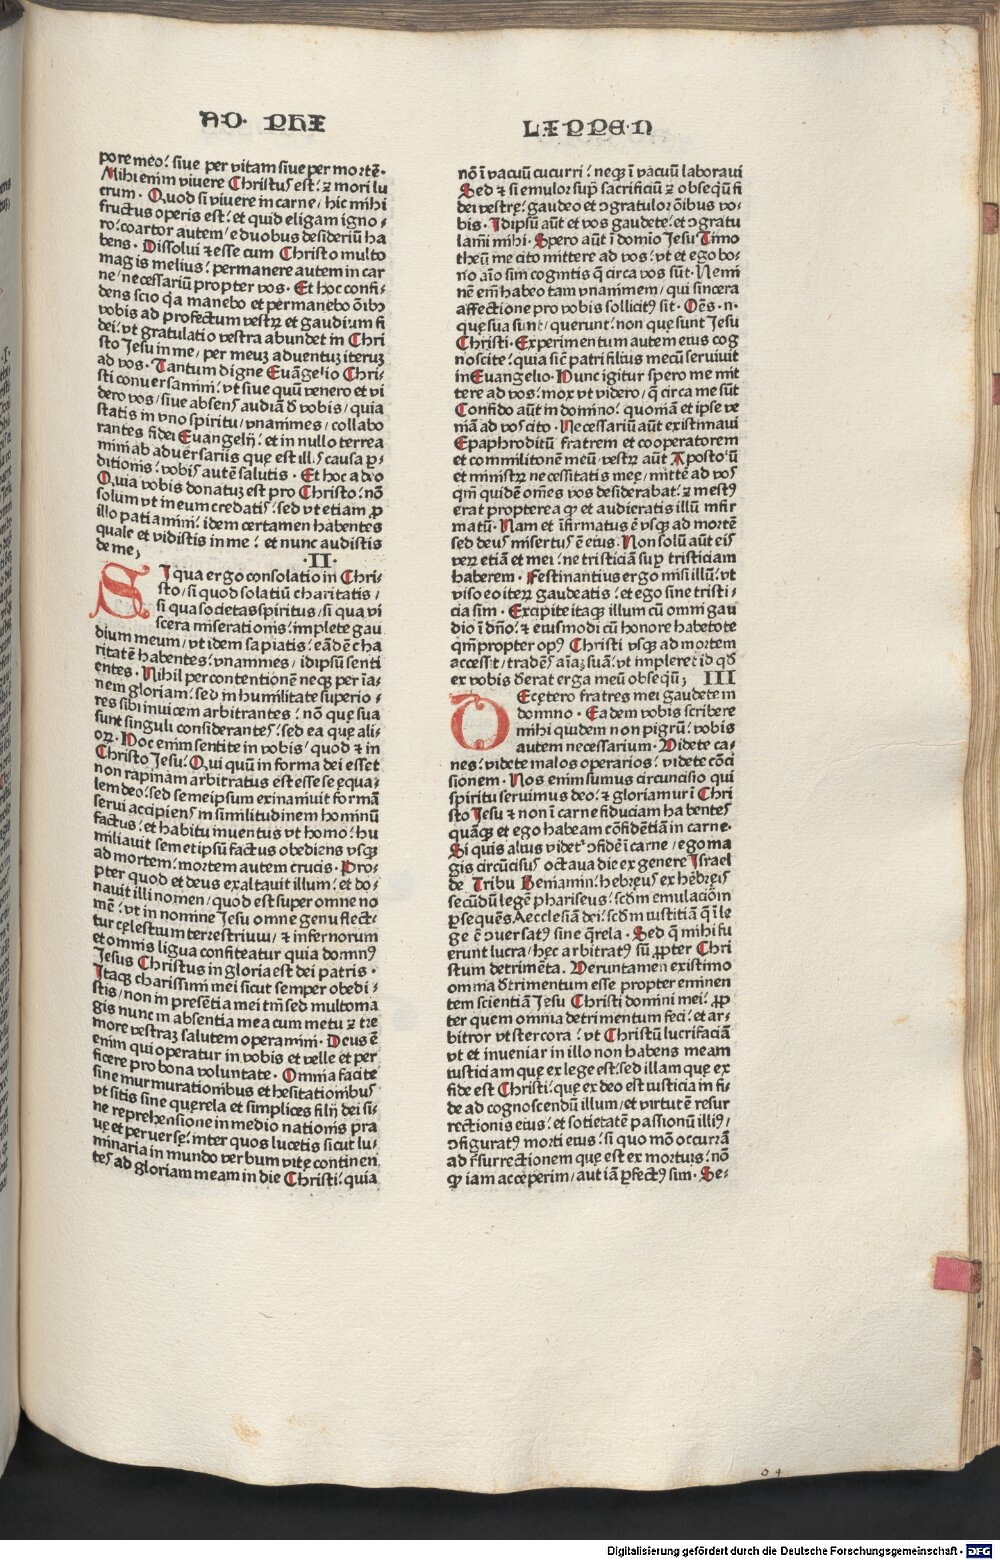 AD. PHI
LIPPEN
pore meo: siue per vitam siue per mortē.
Mihi enim viuere Christus est: et mori lu
crum. Quod si viuere in carne/ hic mihi
fructus operis est: et quid eligam igno-
ro: coartor autem/ e duobus desideriū ha
bens. Dissolui et esse cum Christo multo
magis melius: permanere autem in car
ne/ necessariū propter vos. Et hoc confi-
dens scio qa manebo et permanebo oībꝫ
vobis ad profectum vestrꝝ et gaudium fi
dei: vt gratulatio vestra abundet in Chri
sto Jesu in me/ per meuꝫ aduentuꝫ iteruꝫ
ad vos. Tantum digne Euāgelio Chri-
sti conuersamini: vt siue quū venero et vi
dero vos/ siue absens audiā d vobis/ quia
statis in vno spiritu/ vnanimes/ collabo
rantes fidei Euangelij: et in nullo terrea
mini ab aduersariis que est illis causa ꝑ-
ditionis/ vobis autē salutis. Et hoc a deo
Quia vobis donatuꝫ est pro Christo: nō
solum vt in eum credatis: sed vt etiam ꝓ
illo patiamini: idem certamen habentes
quale et vidistis in me: et nunc audistis
de me;
.II.
SI qua ergo consolatio in Chri-
sto/ si quod solatiū charitatis/
si qua societas spiritus/ si qua vi
scera miserationis: implete gau
dium meum/ vt idem sapiatis: eādē cha
ritatē habentes: vnanimes/ idipsū senti
entes. Nihil per contentionē neqꝫ per īa-
nem gloriam: sed in humilitate superio-
res sibi inuicem arbitrantes: nō que sua
sunt singuli considerantes: sed ea que ali-
oꝝ. Hoc enim sentite in vobis/ quod et in
Christo Jesu. Qui quū in forma dei esset
non rapinam arbitratus est esse se equa-
lem deo: sed semeipsum exinaniuit formā
serui accipiens in similitudinem hominū
factus: et habitu inuentus vt homo: hu
miliauit semetipsū factus obediens vsqꝫ
ad mortem: mortem autem crucis. Pro-
pter quod et deus exaltauit illum: et do-
nauit illi nomen/ quod est super omne no
mē: vt in nomine Jesu omne genu flect-
tur celestium terrestrium/ et infernorum
et omnis ligua confiteatur quia domnꝰ
Jesus Christus in gloria est dei patris.
Itaqꝫ charissimi mei sicut semper obedi-
stis/ non in presētia mei tm̄ sed multo ma
gis nunc in absentia mea cum metu et tre
more vestraꝫ salutem operamini. Deus ē
enim qui operatur in vobis et velle et per
ficere pro bona voluntate. Omnia facite
sine murmurationibus et hesitationibus
vt sitis sine querela et simplices filij dei si-
ne reprehensione in medio nationis pra
ue et peruerse: inter quos lucetis sicut lu-
minaria in mundo verbum vite continen
tes ad gloriam meam in die Christi: quia
nō ī vacuū cucurri: neqꝫ ī vacuū laboraui
Sed et si emulor supꝛ sacrificiū et obseqū fi
dei vestre: gaudeo et ꝯgratulor oībus vo-
bis. Idipsū aūt et vos gaudete: et ꝯgratu
lami mihi. Spero aūt ī domio Jesu Timo
theū me cito mittere ad vos: vt et ego bo-
no aīo sim cognitis q̄ circa vos sūt. Nemi
nē em̄ habeo tam vnanimem/ qui sincera
affectione pro vobis sollicitꝰ sit. Oēs .n.
que sua sunt/ querunt: non que sunt Jesu
Christi. Experimentum autem eius cog
noscite: quia siē patri filius mecū seruiuit
in Euangelio. Nunc igitur spero me mit
tere ad vos: mox vt videro/ q̄ circa me sūt
Confido aūt in domino: quoniā et ipse ve
niā ad vos cito. Necessariū aūt existimaui
Epaphroditū fratrem et cooperatorem
et commilitonē meū/ vestrꝝ aūt Apostolū
et ministrꝝ necessitatis mee/ mittē ad vos
qm̄ quidē omēs vos desiderabat: et mestꝰ
erat propterea qꝫ et audieratis illū infir
matū. Nam et īfirmatus ē vsqꝫ ad mortē
sed deus misertus ē eius. Non solū aūt eiꝰ
verꝝ etiā et mei: ne tristiciā supꝛ tristiciam
haberem. Festinantius ergo misi illū: vt
viso eo iterꝝ gaudeatis: et ego sine tristi-
cia sim. Excipite itaqꝫ illum cū omni gau
dio ī dn̄o: et eiusmodi cū honore habetote
qm̄ propter opꝰ Christi vsqꝫ ad mortem
accessit/ tradēs aīaꝫ suā: vt impleret id qd̄
ex vobis derat erga meū obseqū; III
DE cetero fratres mei gaudete in
domino. Eadem vobis scribere
mihi quidem non pigrū: vobis
autem necessarium. Videte ca-
nes: videte malos operarios: videte cōci
sionem. Nos enim sumus circuncisio qui
spiritu seruimus deo: et gloriamur ī Chri
sto Jesu et non ī carne fiduciam habentes
quāqꝫ et ego habeam cōfidētiā in carne.
Si quis alius videtᷣ ꝯfidē ī carne/ ego ma
gis circūcisus octaua die ex genere Israel
de Tribu Beniamin: hebreus ex hebreis
secūdū legē phariseus: scd̄m emulacioīn
ꝑsequēs Aecclesiā dei: scd̄m iustitiā q̄ ī le
ge ē ꝯuersatꝰ sine q̄rela. Sed q̄ mihi fu
erunt lucra/ hec arbitratꝰ sū ꝓpter Chri
stum detrimēta. Veruntamen existimo
omnia detrimentum esse propter eminen
tem scientiā Jesu Christi domini mei: ꝓp
ter quem omnia detrimentum feci: et ar-
bitror vt stercora: vt Christū lucrifaciā
vt et inueniar in illo non habens meam
iusticiam que ex lege est: sed illam que ex
fide est Christi: que ex deo est iusticia in fi-
de ad cognoscendū illum/ et virtutē resur
rectionis eius: et societatē passionū illiꝰ/
ꝯfiguratꝰ morti eius: si quo mō occurrā
ad r̄surrectionem que est ex mortuis: nō
qꝫ iam acceperim/ aut iā ꝑfectꝰ sim. Se-
Digitalisierung gefördert durch die Deutsche Forschungsgemeinschaft - DFG